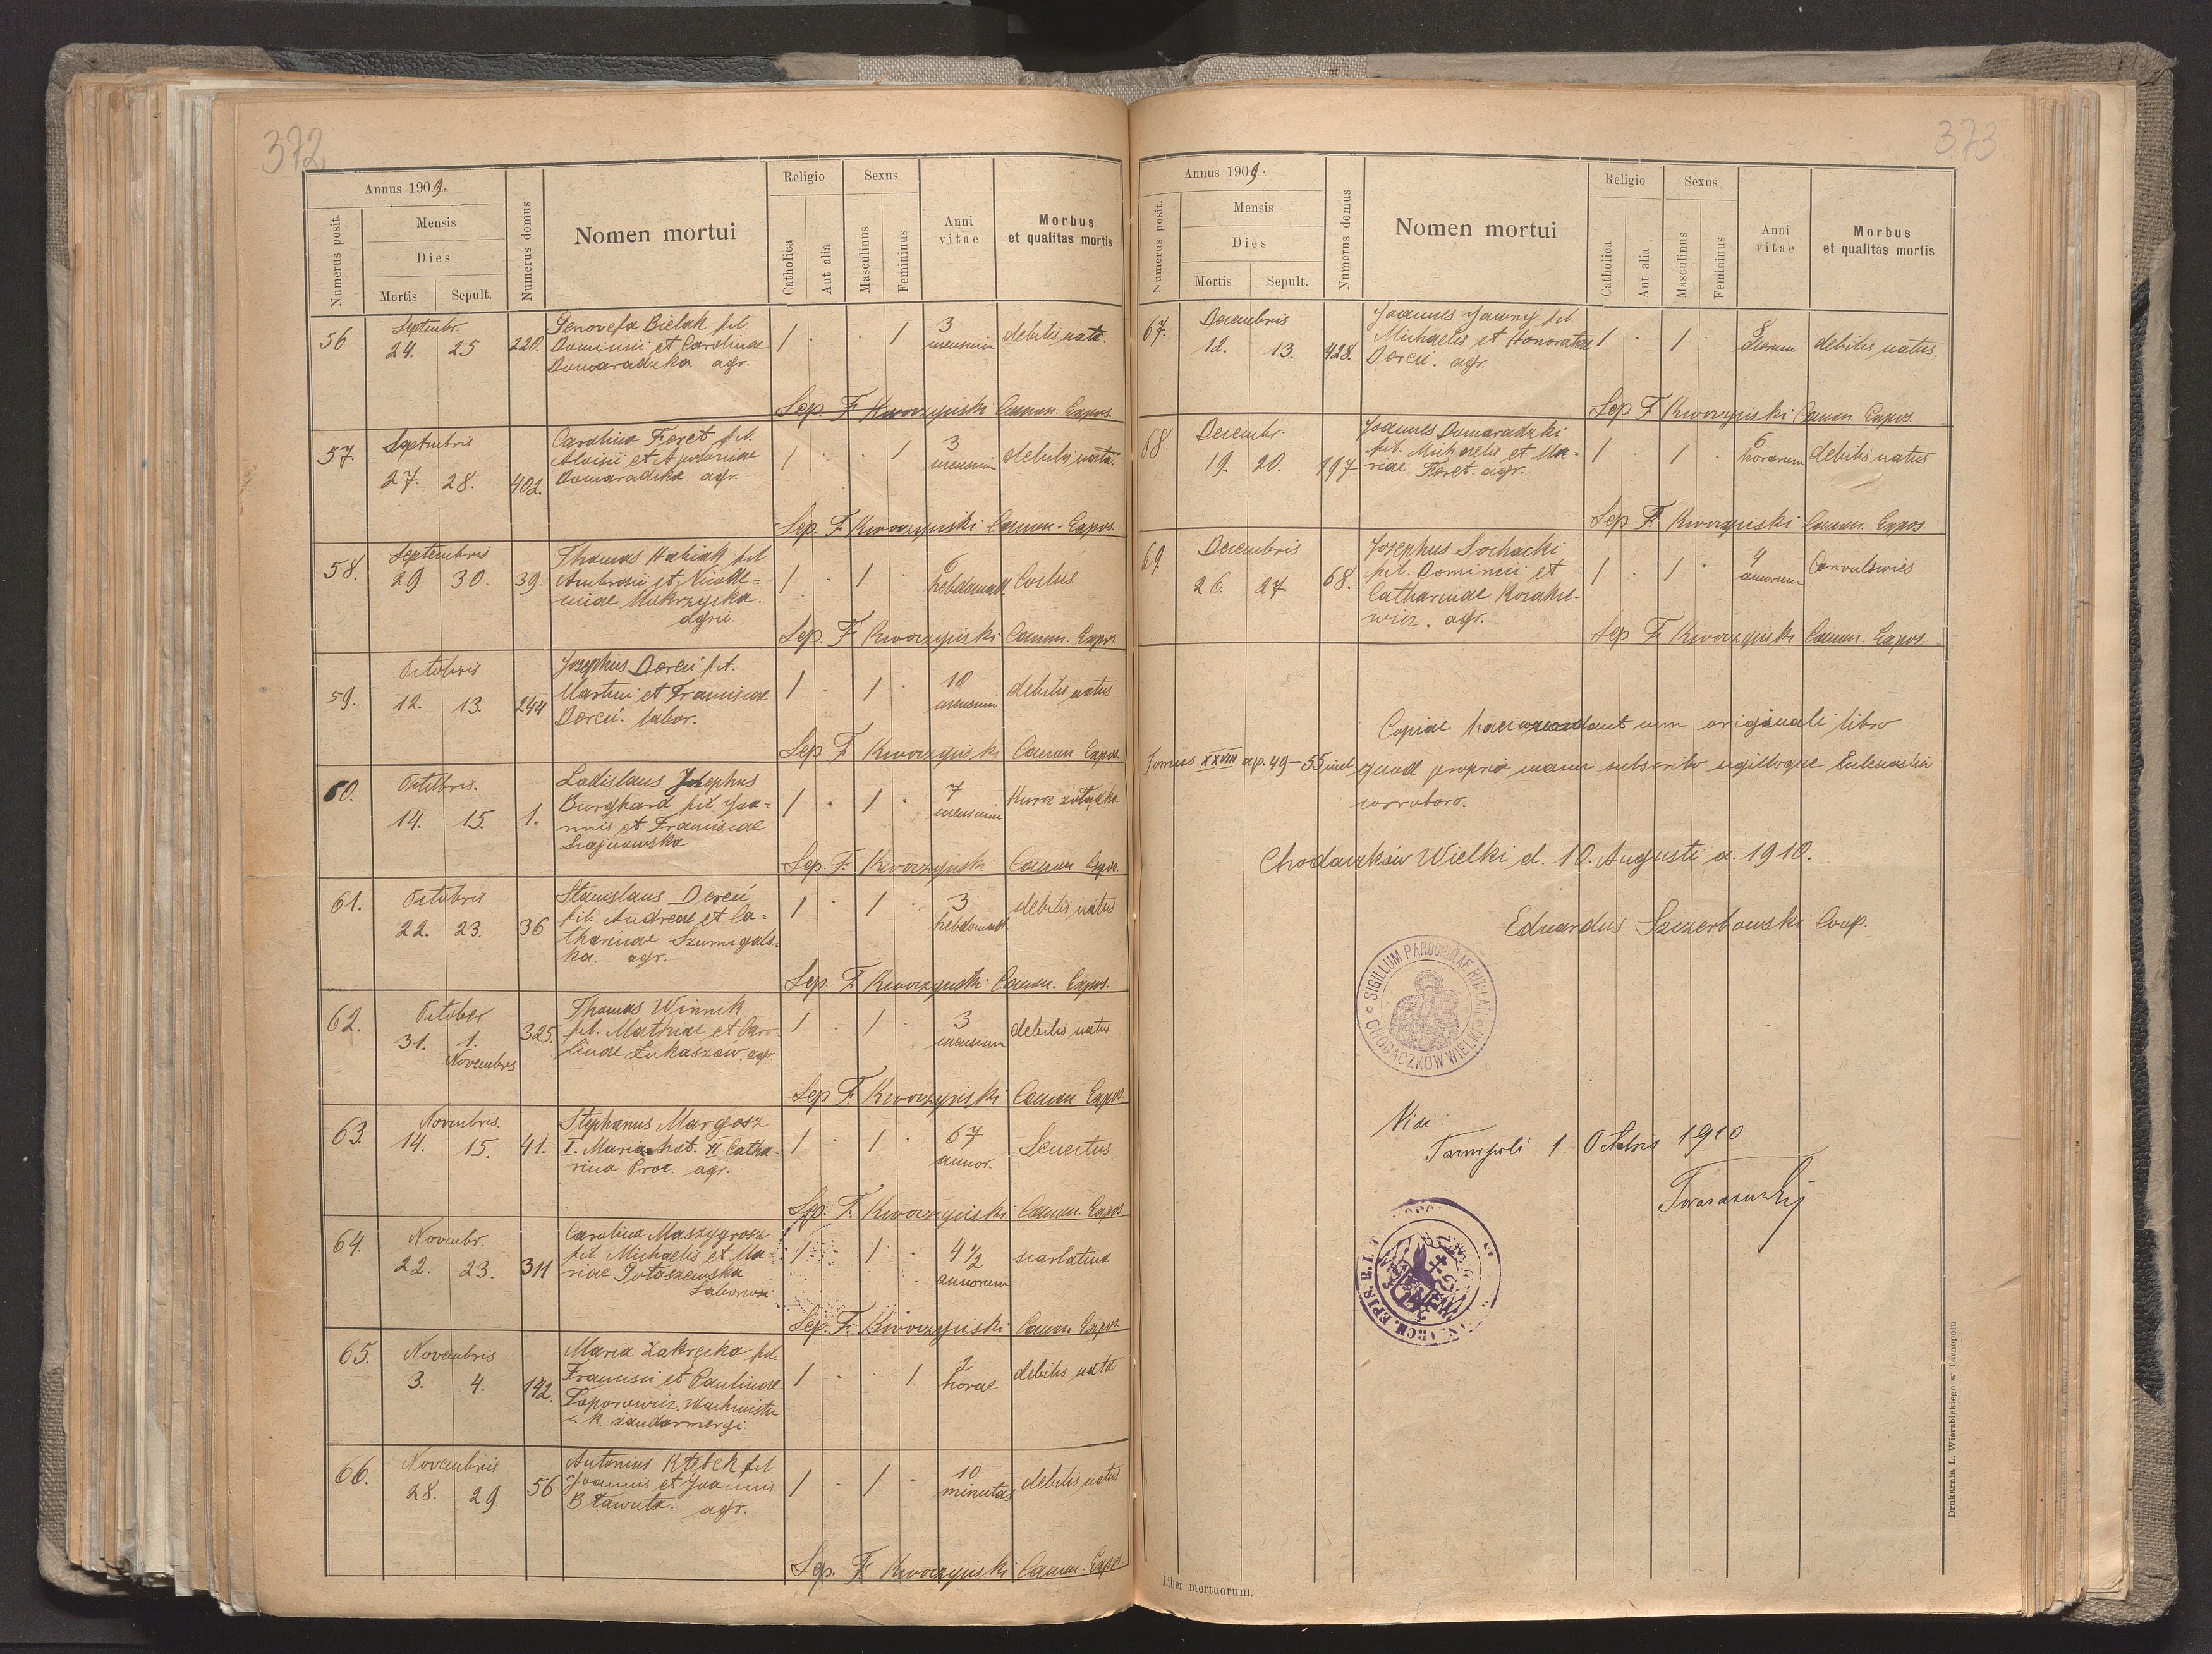 372
Annus 1909.
Numerus posit.
Mensis
Dies
Mortis Sepult.
Numerus domus
Nomen mortui
Religio
Catholica
Aut alia
Sexus
Masculinus
Femininus
Anni
vitae
Morbus
et qualitas mortis
56 Septembr. 24. 25 220.
Genovefa Bielak fil.
Dominici et Carolinae
Domaradzka. agr.
1 . . 1 3 mensium debilis nata.
Sep. F. Kworzyński Coomen. Expos.
57. Septembris 27. 28. 402.
Carolina Feret fil.
Aloisii et Apoloniae
Domaradzka agr.
1 . . 1 3 mensium debilis nata.
Sep. F. Kworzyński Coomen. Expos.
58. Septembris 29 30. 39.
Thomas Habiak fil.
Ambrosii et Nicode-
miae Mokrzycka.
agric.
1 . 1 . 6 hebdomad
Sep. F. Kworzyński Coomen. Expos
59. Octobris 12. 13. 244
Josephus Dereń fil.
Martini et Franciscae
Dereń. labor.
1 . 1 . 10 mensium debilis natus
Sep. F. Kworzyński Coomen. Expos.
60. Octobris. 14. 15. 1.
Ladislaus Josephus
Burghard fil. Joa-
nnis et Franciscae
1 . 1 . 7 mensium
Sep. F. Kworzyński Coomen Expos.
61. Octobris 22. 23. 36
Stanislaus Dereń
fil. Andreae et Ca-
tharinae Szumigals-
ka. agr.
1 . 1 . 3 hebdomad debilis natus
Sep. F. Kworzyński Coomen. Expos.
62. October 31. 1. Novembris 325.
Thomas Winnik
fil. Mathiae et Caro-
linae Łukaszów. agr.
1 . 1 . 3 mensium debilis natus
Sep F. Kworzyński Coomen Expos
63. Novembris. 14. 15. 41.
Stephanus Margosz
I. Maria II Catha-
rina Proc. agr.
1 . 1 . 67 annor. Senectus
Sep. F. Kworzyński Coomen. Expos
64. Novembr. 22. 23. 311
Carolina Maszygrosz
fil. Michaelis et Ma-
riae Potaszewska
1 1 . 4 1/2 annorum scarlatina
Sep. F. Kworzyński Coomen. Expos
65. Novembris 3. 4. 142.
Maria Zakręcka fil.
Francisci et Paulinae
Toporowicz. Wachmistr
c. k. żandarmergi.
1 . . 1 2 horae debilis nata
66. Novembris 28. 29. 56
Antonius Kłębek fil.
Joannis et Joannis
Bławuta. agr.
1 . 1 . 10 minutas debilis natus
Sep. F. Kworzyński Coomen. Expos
373
Annus 1909.
Numerus posit.
Mensis
Dies
Mortis Sepult.
Numerus domus
Nomen mortui
Religio
Catholica
Aut alia
Sexus
Masculinus
Femininus
Anni
vitae
Morbus
et qualitas mortis
67. Decembris 12. 13. 128.
Joannes Jawny fil
Michaelis et Honoratae
Dereń. agr.
1 . 1 . 8 dierum debilis natus.
Sep F. Kworzyński Coomen. Expos.
68. Decembr. 19. 20. 197
Joannes Domaradzki
fil. Michaelis et Ma-
riae Feret. agr.
1 . 1 . 6 horarum debilis natus
Sep F. Kworzyński Coomen. Expos.
69 Decembris 26. 27 68.
Josephus Sochacki
fil. Dominici et
Catharinae Kozakie-
wicz. agr.
1 . 1 . 4 annorum Convulsiones
Sep F. Kworzyński Coomen. Expos.
Copiae hae concordant cum originali libro
Tomus XXVIII a p. 49-55 incl quod propria manu subscribo sigilloque Ecclesiastico
corroboro.
Chodaczków Wielki d. 10. Augusti a. 1910.
Eduardus Szczerbowski Coop.
SIGILLUM PAROCHIALE RIT. LAT. CHODACZKÓW WIELKI
Vidi
Tarnopoli 1. Octobris 1910
Drukarnia L. Wierzbickiego w Tarnopolu
Liber mortuorum.